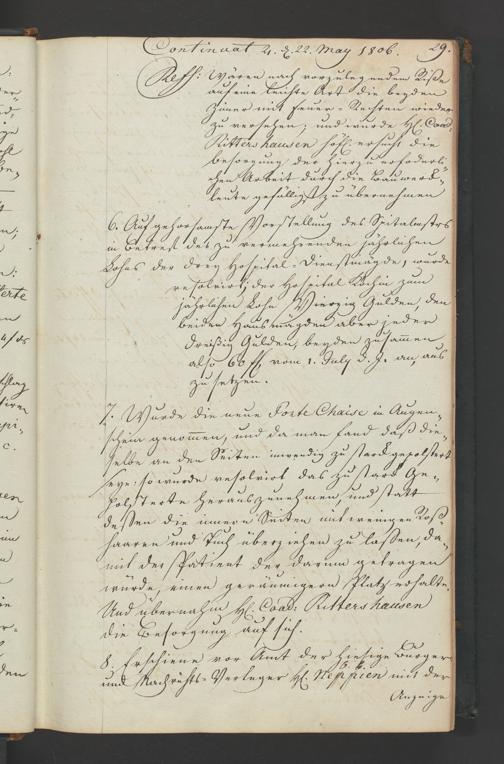 Continuat 4. d. 22. May 1806. 29.
Resp: Wären nach vorzulegendem Riße
auf eine leichte Art die beyden
Zimer mit Feuer-Rechten wieder
zu versehen; und wurde H. Coad:
Rittershausen höfl. ersucht die
Besorgung der hierzu erforderli
chen Arbeit durch die Bauwerck-
leute gefälligst zu übernehmen
6. Auf gehorsamste Vorstellung des Spitalmstrs
in Betref des zu vermehrenden jährlichen
Lohns der drey Hospital-Dienstmägde, wurde
resolvirt, der Hospital Köchin zum
jährlichen Lohn Vierzig Gulden, den
beiden Hausmägden aber jeder
dreißig Gulden, beyden zusamen
also 60 f. vom 1. July d. J. an, aus
zu setzen.
7. Wurde die neue Porte Chaise in Augen-
schein genommen, und da man fand daß die-
selbe an den Seiten inwendig zu starck gepolstert
seye: so wurde resolvirt das zu starck Ge-
polsterte herauszunehmen und statt
dessen die innern Seiten mit wenigen Roß
haaren und Tuch überziehen zu lassen, da-
mit der Patient der darinn getragen
würde, einen geräumigern Platz erhalte.
Und übernahm H. Coad: Rittershausen
die Besorgung auf sich.
8. Erschiene vor Amt der hiesige Burger
und Nachrichts-Verleger H. Neppien mit der
Anzeige